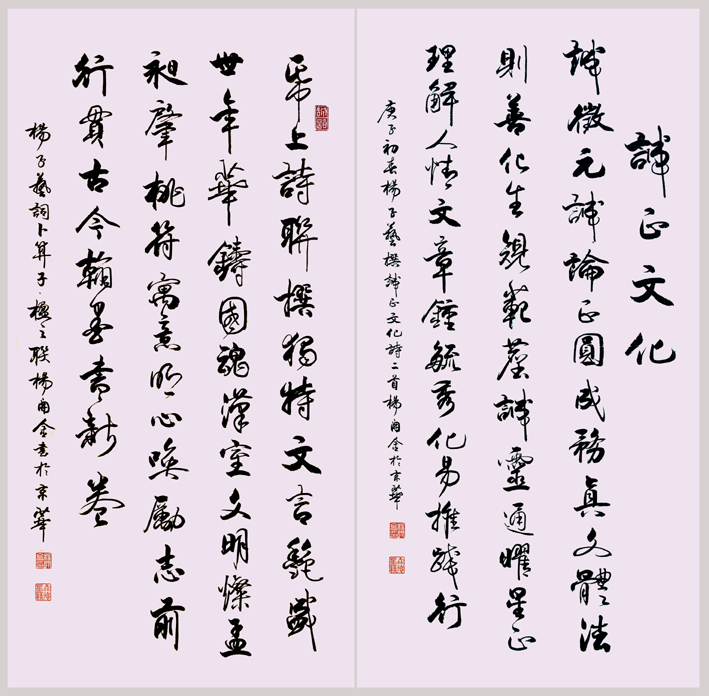 誠正文化
誠徵元誠論正圓成務真文體法
則善化生規範基誠靈通曜星正
理解人情文章鍾毓秀化易推踐行
庚子初春楊子藝撰誠正文化詩二首楊於京華
帋上詩聯撰獨特文言艷盛
世年華鑄國魂漢室文明燦孟
昶肇桃符寓意明心喚勵志前
行貫古今翰墨書新卷
楊子藝詞卜算子·楹之联楊書於京華